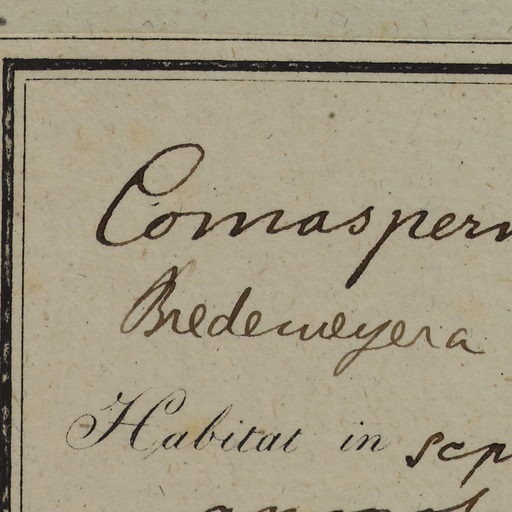 Comasperm
Bredemeyera
Habitat in sep